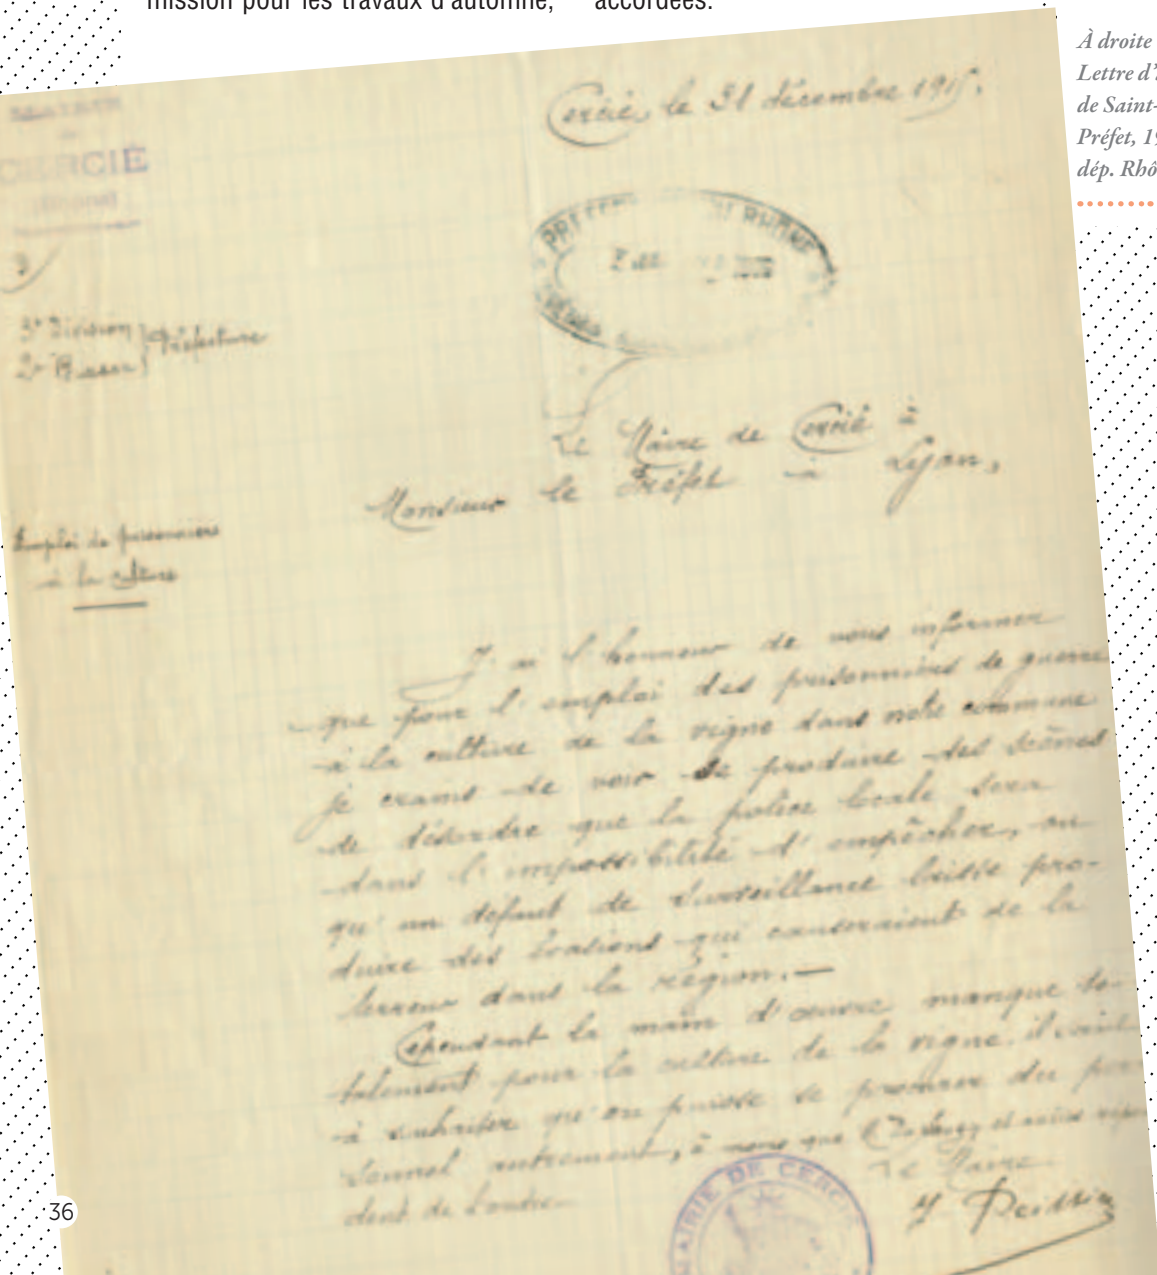 mission pour les travaux d'automne,
accordées.
À droite
Lettre d'
de Saint-
Préfet, 19
dép. Rhô
MAIRIE
DE
CERCIÉ
(Rhône)
Cercié, le 31 décembre 1915.
PRÉFECTURE DU RHÔNE
3e Division
2e Bureau } Préfecture
Le Maire de Cercié à
Monsieur le Préfet à Lyon,
Emploi de prisonniers
à la culture
J'ai l'honneur de vous informer
que pour l'emploi des prisonniers de guerre
à la culture de la vigne dans notre commune
je crains de voir se produire des scènes
de désordre que la police locale sera
dans l'impossibilité d'empêcher, ou
qu'un défaut de surveillance laisse pro-
duire des évasions qui causeraient de la
terreur dans la région. —
Cependant la main d'œuvre manque to-
talement pour la culture de la vigne, il serait
à souhaiter qu'on puisse se procurer du per
sonnel autrement, à moins que
dent de l'ordre.
Le Maire
MAIRIE DE CERCIÉ
36